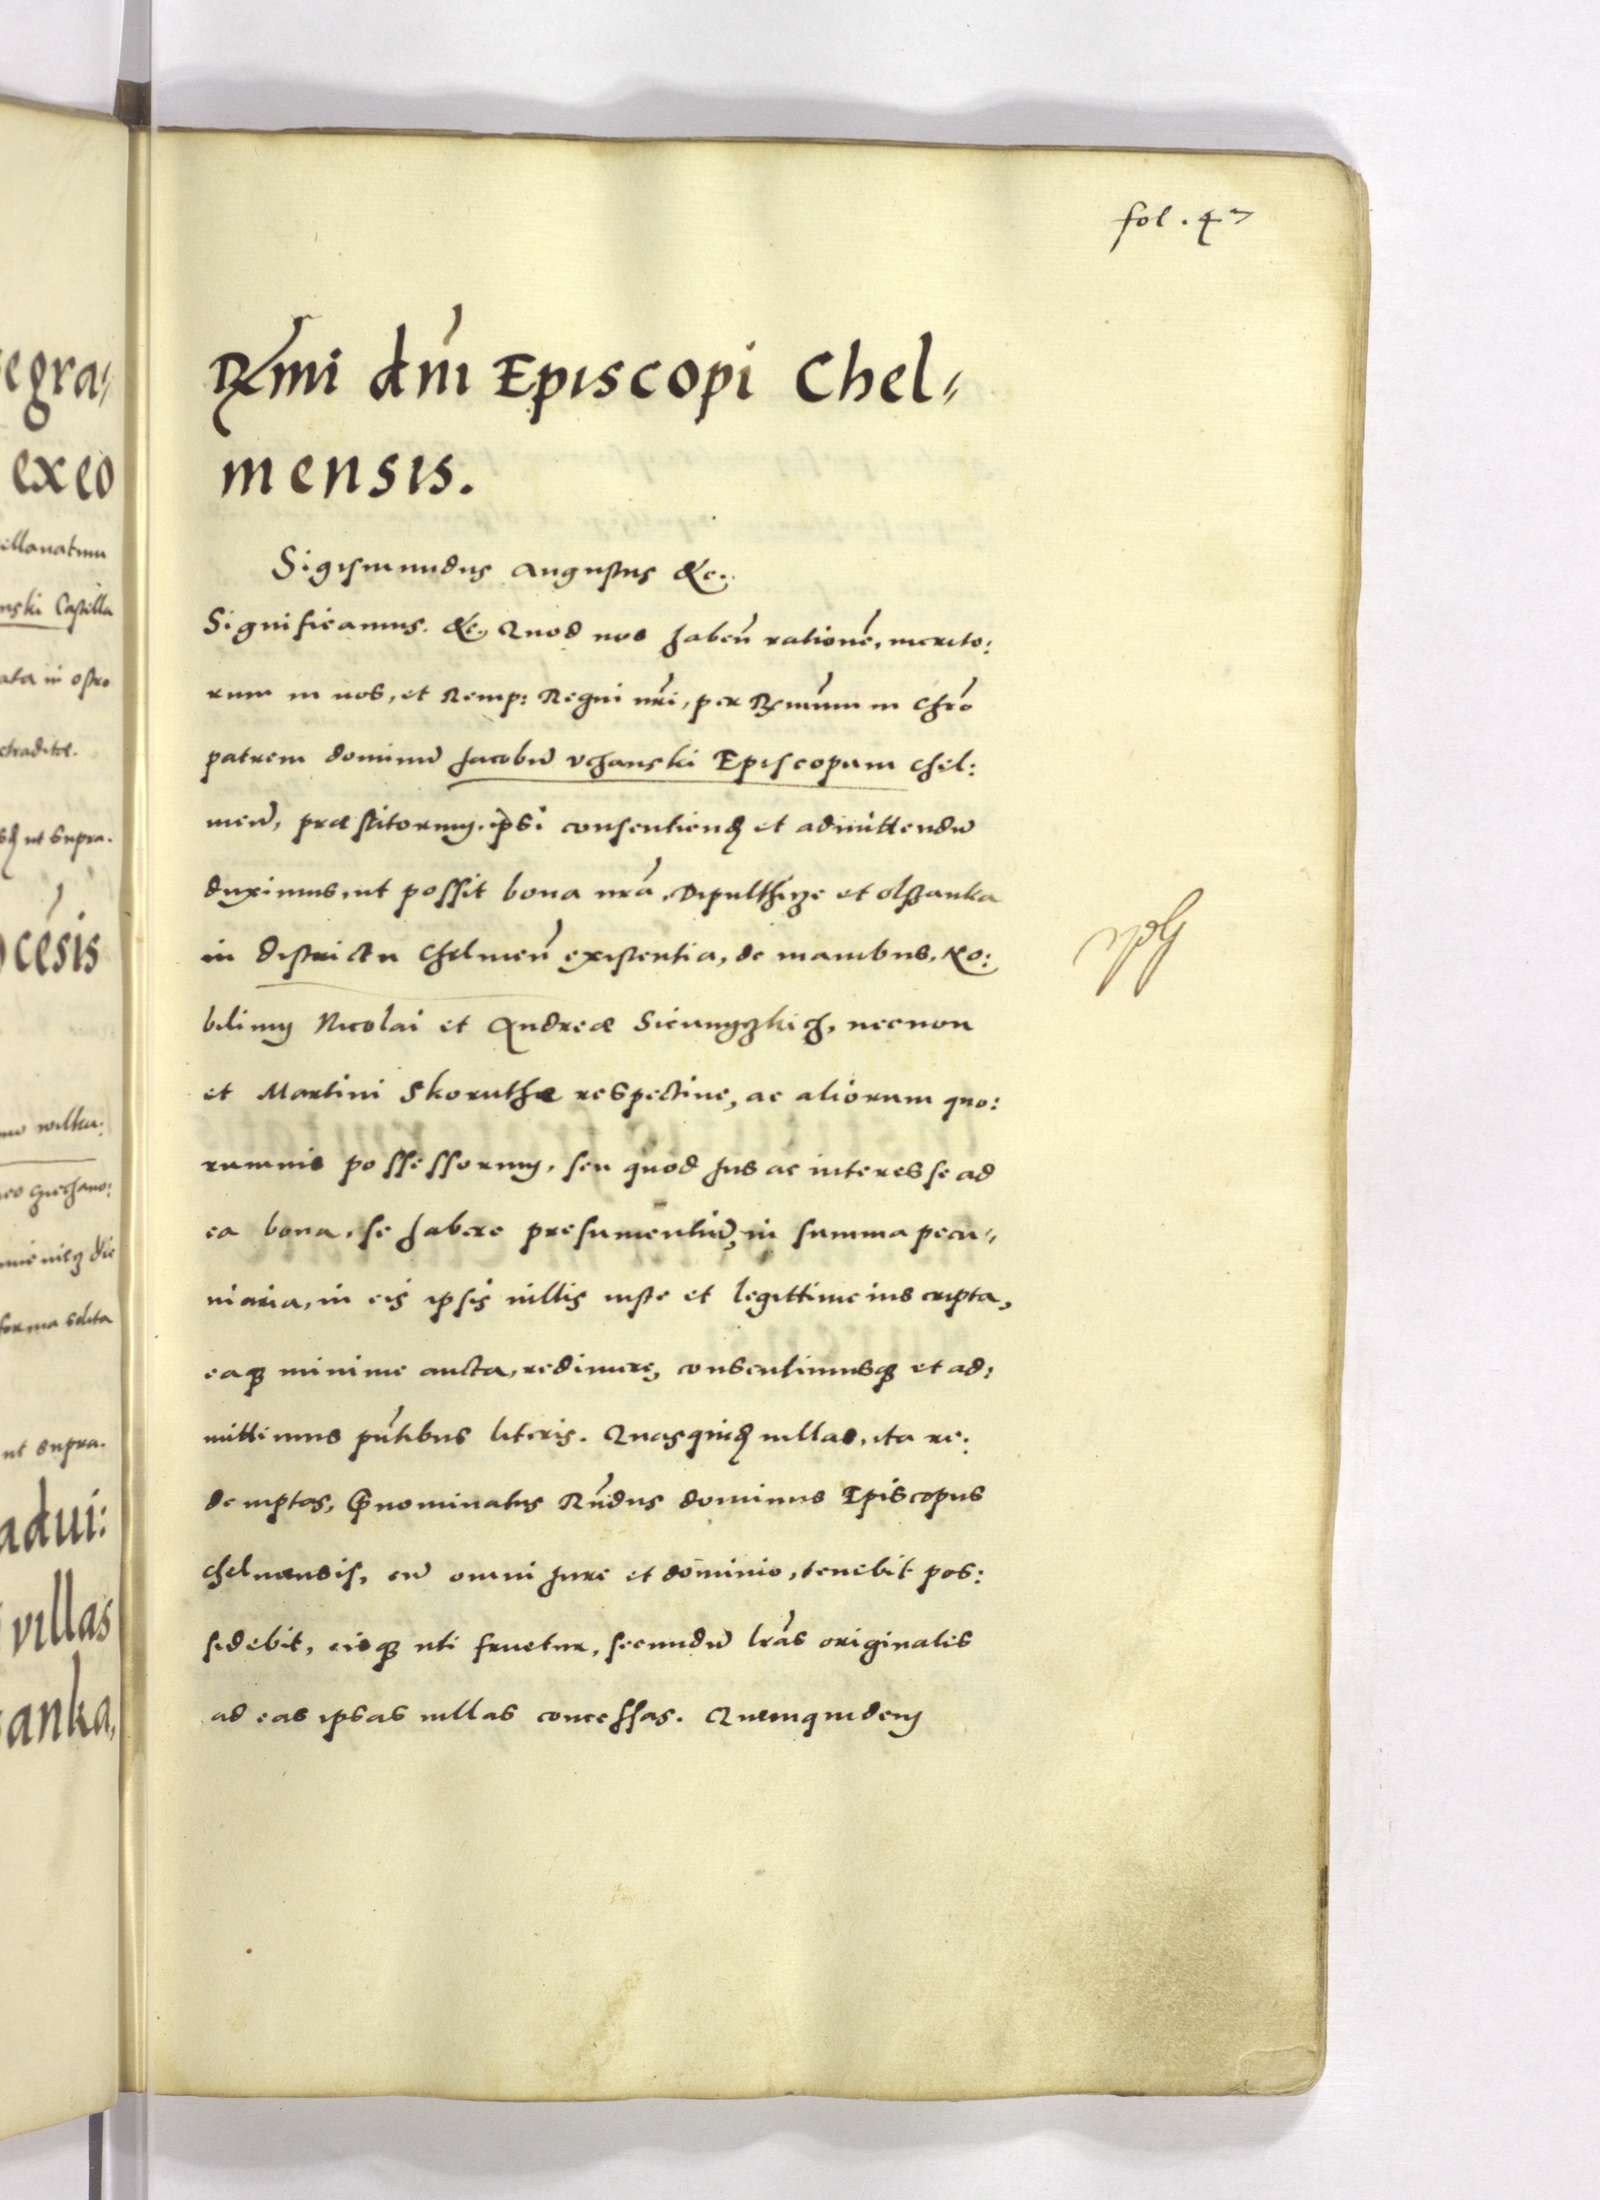 fol. 47
Rx́mi dńi Episcopi Chel=
mensis.
Sigismundus Augustus &c.
Significamus. &c. Quod nos habeń rationé, merito:
rum in nos, et Remp: Regni nŕi, per Rx́mum in Chŕo
patrem dominū Jacobū Vchanski Episcopum Chel:
meń, præstitorum, ipsi consentiend et admittendū
duximus, ut possit bona nŕa, et olszanka
in districtu Chelmeń existentia, de manibus, No:
bilium Nicolai et Andreæ, necnon
et Martini Skoruthæ respective, ac aliorum quo:
rumvis possessorum, seu quod Jus ac interesse ad
ea bona, se habere presumentiū, in summa pecu=
niaria, in eis ipsis villis iuste et legittime inscripta,
eaq minime aucta, redimere, consentimusq et ad:
mittimus pńtibus literis. Quasquid villas, ita re:
demptas, Pnominatus Rńdus dominus Episcopus
Chelmensis, cū omni Jure et dominio, tenebit pos:
sidebit, eisq uti fruetur, secundū lŕas originales
ad eas ipsas villas concessas. Quemquidem
egra=
exeo
nski Castilla
ut supra.
césis
forma solita
ut supra.
adui:
villas
anka,